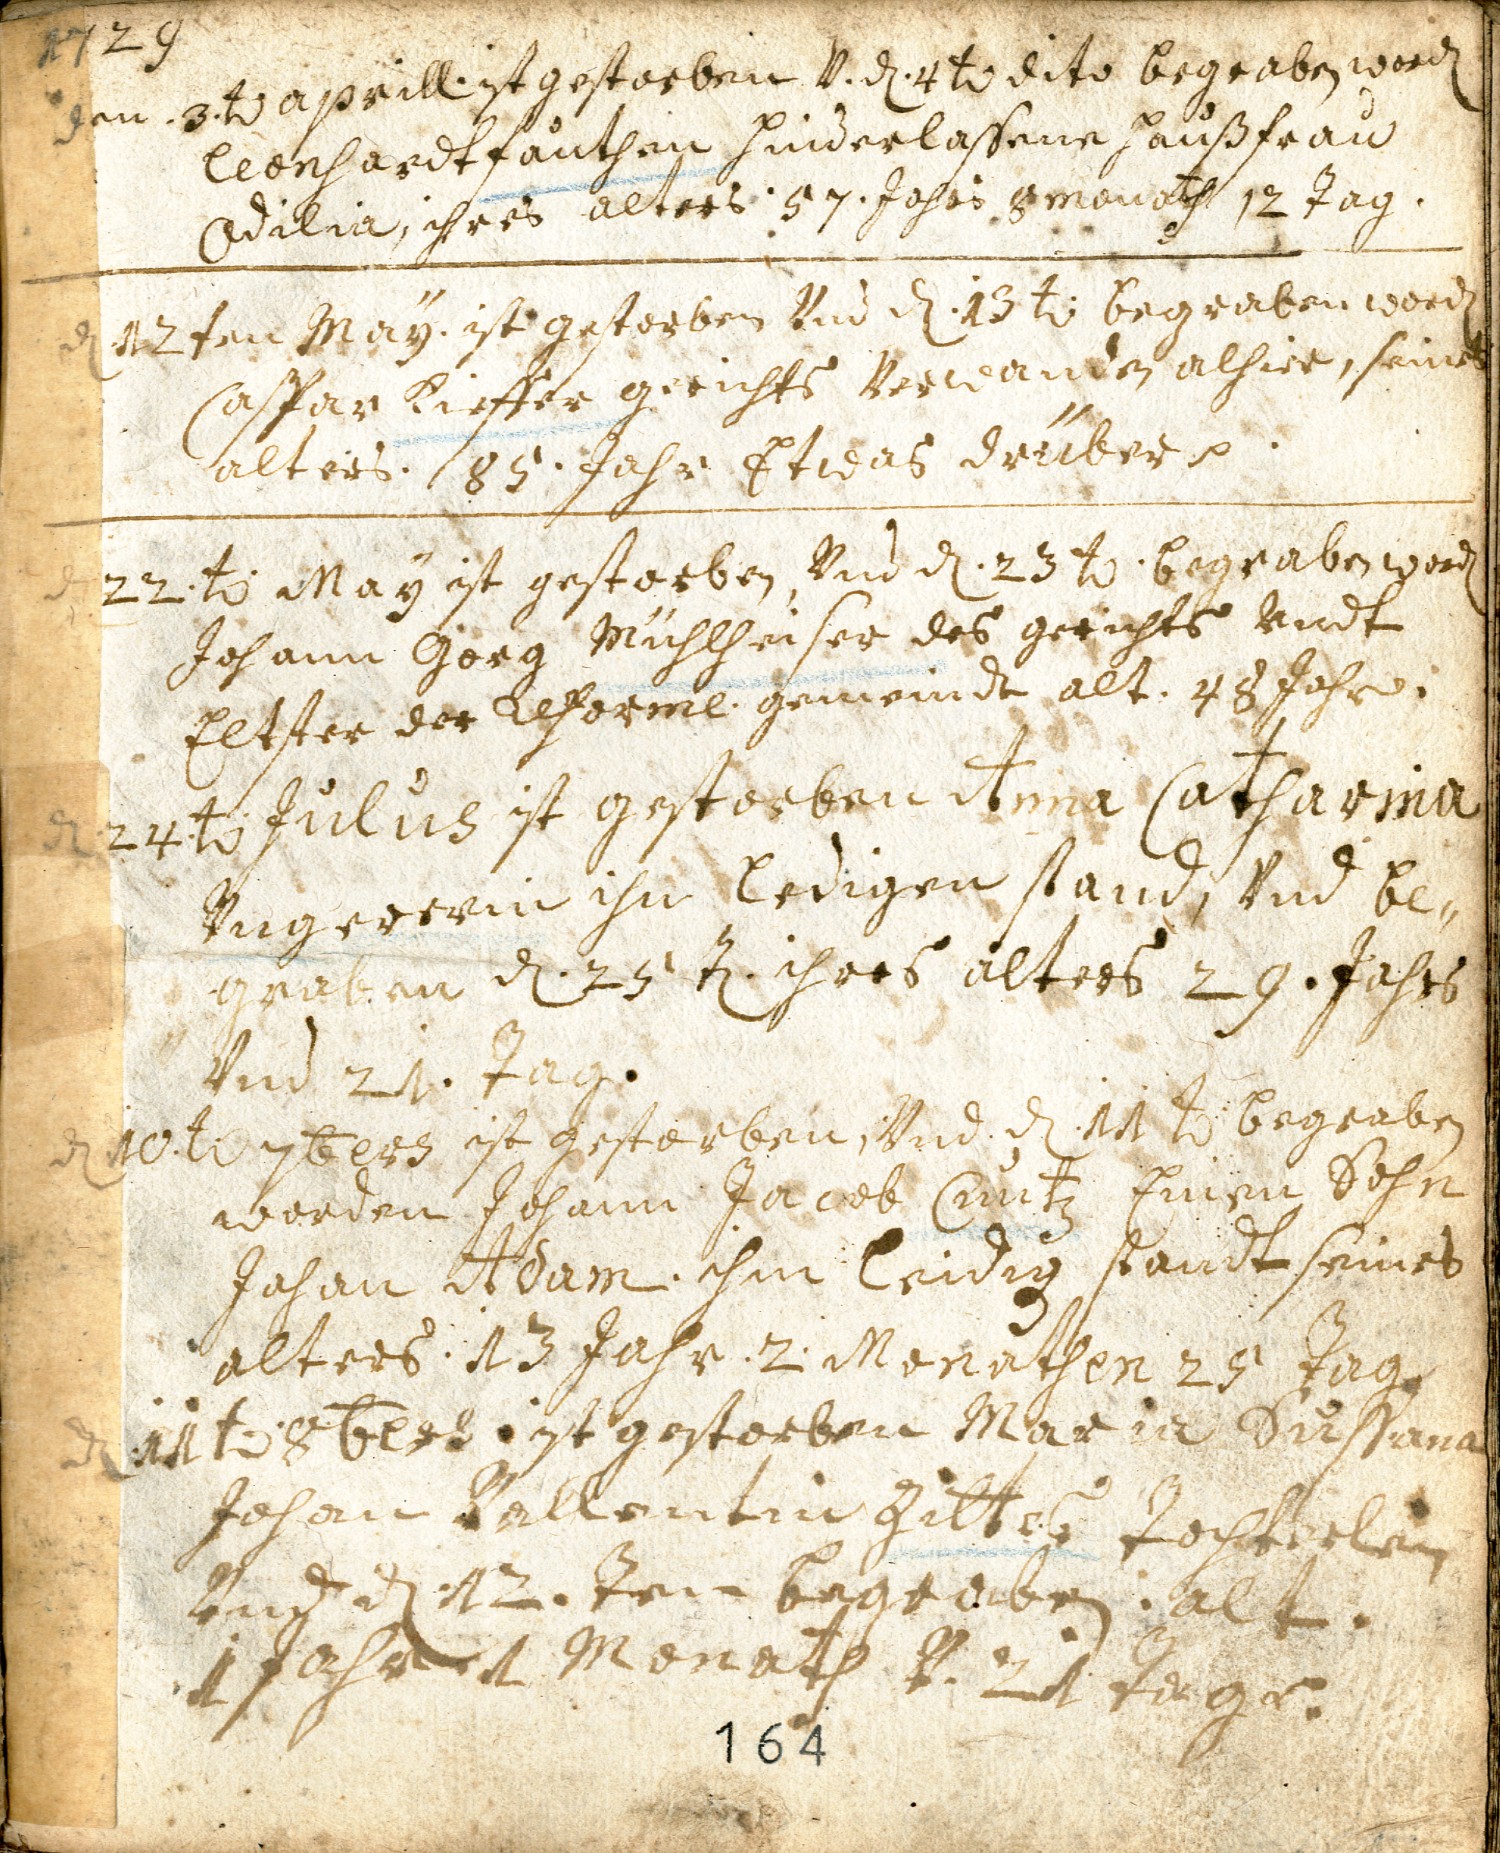 1729
den 3.t aprill ist gestorben V. d. 4t dito begraben word
Leonhardt fauthen hinderlassene haußfrau
Odilia, ihres alters 57. Jahrs 8 monath 12 Tag.
d 12ten Maÿ. ist gestorben Vnd d. 13t begraben word
Casspar Kieffer gerichts Verwanden alhier, seines
alters. 85. Jahr Etwas drüber
d 22.t Maÿ ist gestorben, Vnd d. 23t. begraben word
Johann Georg Mühlheiser des gerichts Vndt
Eltster der gemeinde alt. 48 Jahr.
d 24.t Julus ist gestorben Anna Catharina
Vngererin ihn ledigen stand, Vnd be„
graben d. 25 t. ihres alters 29. Jahrs
Vnd 21. Tag.
d 10.t 7bers ist gestorben, Vnd d. 11t begraben
worden Johann Jacob Cuntz Einen Sohn
Johan Adam. ihm leidig standt seines
alters. 13 Jahr. 2. Monathen 25 Tag.
d 11t 8bers ist gestorben Maria Sussana
Johan Vallentin Tochterlein
Vnd d 12. ten begraben. alt.
1 Jahr 1 Monath V. 21 Tage.
164